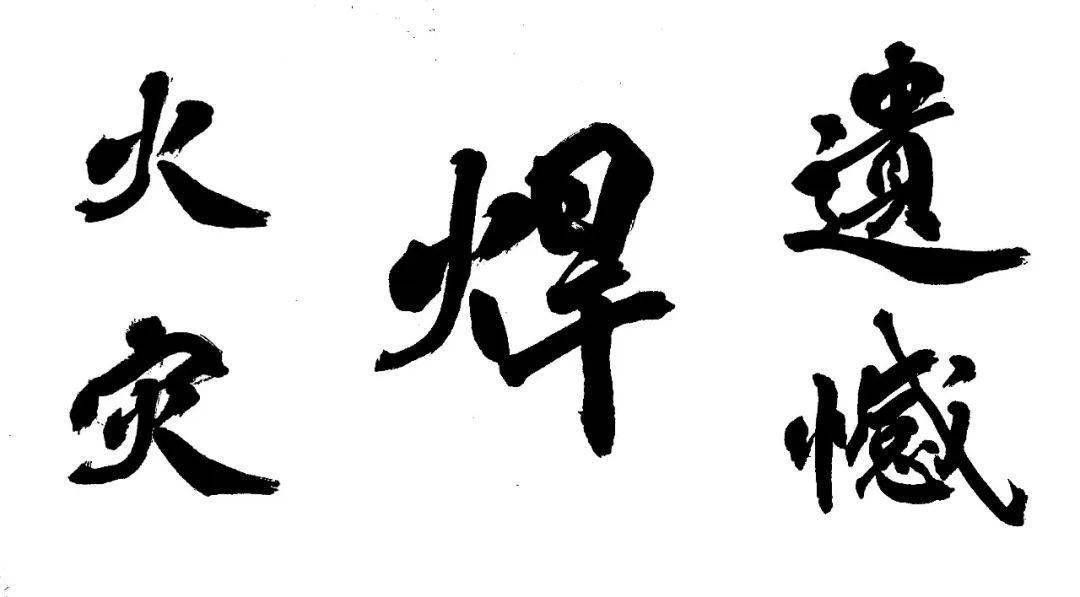 火灾
焊
遺憾